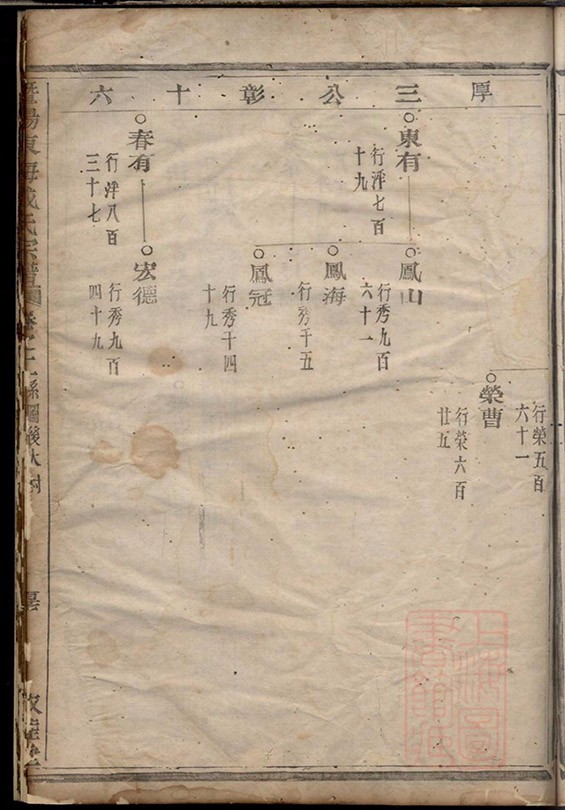 厚三公彰十六
行榮五百
六十一
榮曹
行榮六百
廿五
東有
行泮七百
十九
鳳山
行秀九百
六十一
鳳海
行秀千五
鳳冠
行秀千四
十九
春有
行泮八百
三十七
宏德
行秀九百
四十九
暨陽東海
氏宗譜
系圖後大